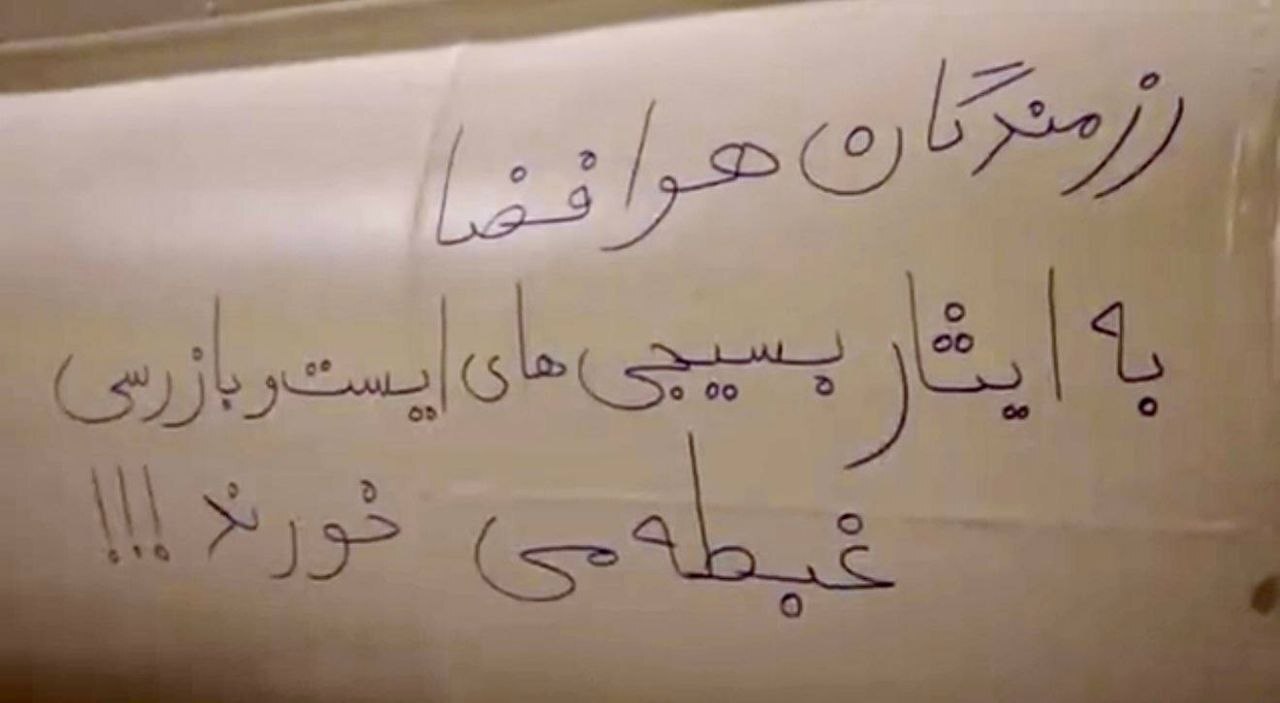 رزمندگان هوافضا
به ایثار بسیجی های ایست و بازرسی
غبطه می خورند !!!